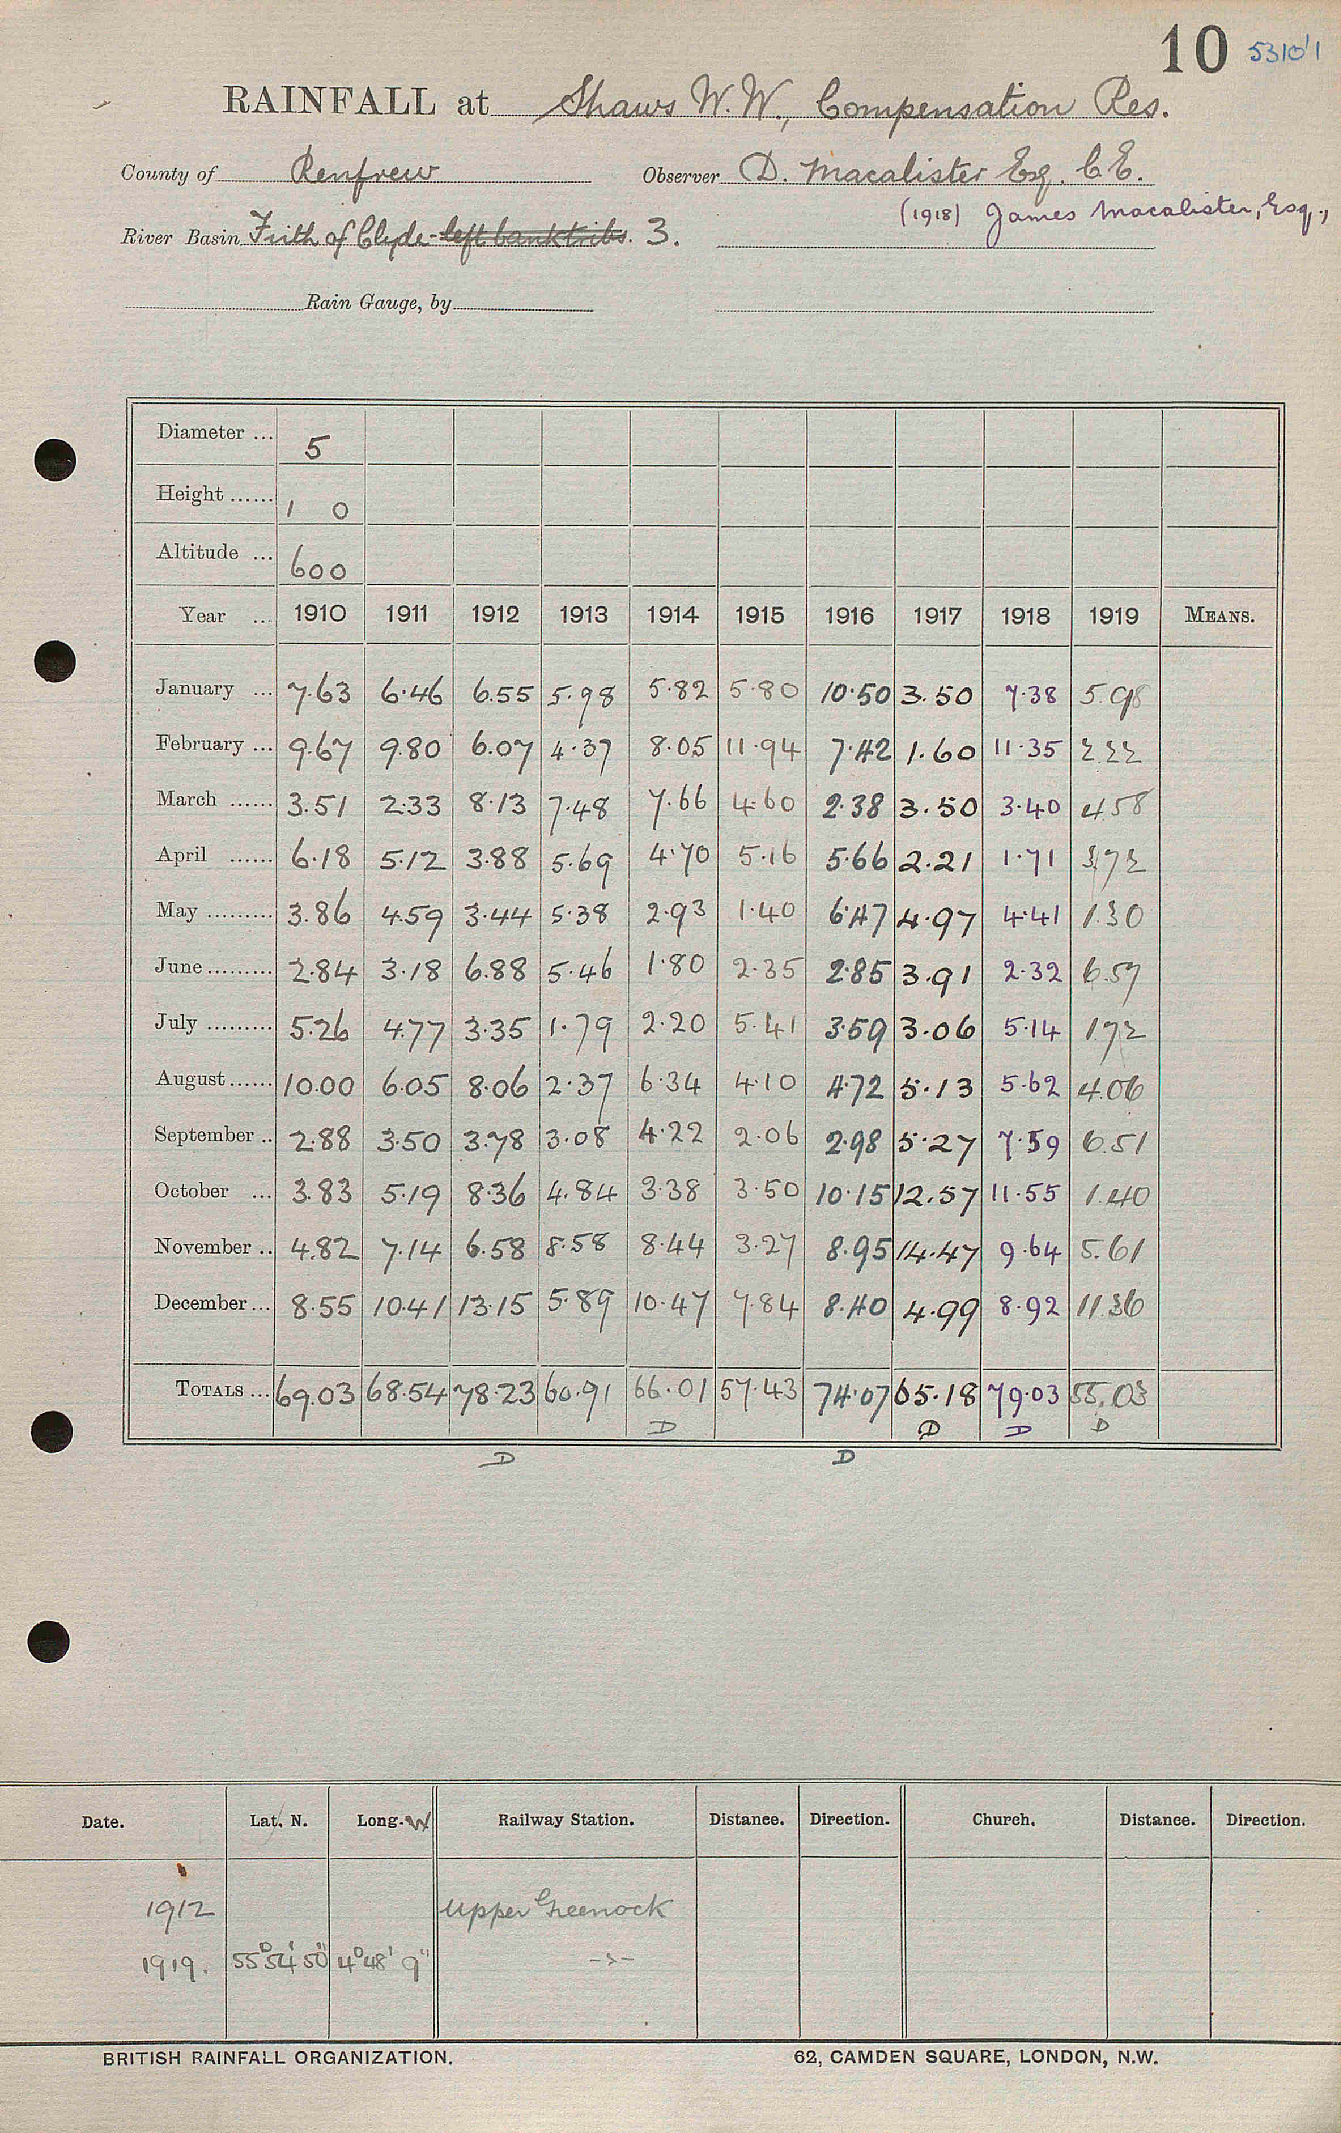 10 5310/1
RAINFALL at Shaws W.W., Compensation Res.
County of Renfrew Observer D. Macalister Esq. C.E.
(1918) James Macalister, Esq.,
River Basin Firth of Clyde - left bank tribs. 3.
Rain Gauge, by
Diameter ... 5
Height ...... 1 0
Altitude ... 600
Year ... 1910 1911 1912 1913 1914 1915 1916 1917 1918 1919 MEANS.
January ... 7.63 6.46 6.55 5.98 5.82 5.80 10.50 3.50 7.38 5.98
February ... 9.67 9.80 6.07 4.37 8.05 11.94 7.42 1.60 11.35 2.22
March ...... 3.51 2.33 8.13 7.48 7.66 4.60 2.38 3.50 3.40 4.58
April ...... 6.18 5.12 3.88 5.69 4.70 5.16 5.66 2.21 1.71 3.72
May ......... 3.86 4.59 3.44 5.38 2.93 1.40 6.47 4.97 4.41 1.30
June ......... 2.84 3.18 6.88 5.46 1.80 2.35 2.85 3.91 2.32 6.57
July ......... 5.26 4.77 3.35 1.79 2.20 5.41 3.59 3.06 5.14 1.72
August ...... 10.00 6.05 8.06 2.37 6.34 4.10 4.72 5.13 5.62 4.06
September .. 2.88 3.50 3.78 3.08 4.22 2.06 2.98 5.27 7.59 6.51
October ... 3.83 5.19 8.36 4.84 3.38 3.50 10.15 12.57 11.55 1.40
November .. 4.82 7.14 6.58 8.58 8.44 3.27 8.95 14.47 9.64 5.61
December ... 8.55 10.41 13.15 5.89 10.47 7.84 8.40 4.99 8.92 11.36
TOTALS ... 69.03 68.54 78.23 60.91 66.01 57.43 74.07 65.18 79.03 55.03
D D D D
D D
Date. Lat. N. Long. W Railway Station. Distance. Direction. Church. Distance. Direction.
1912 Upper Greenock
1919. 55° 54' 50" 4° 48' 9" -,-
BRITISH RAINFALL ORGANIZATION. 62, CAMDEN SQUARE, LONDON, N.W.